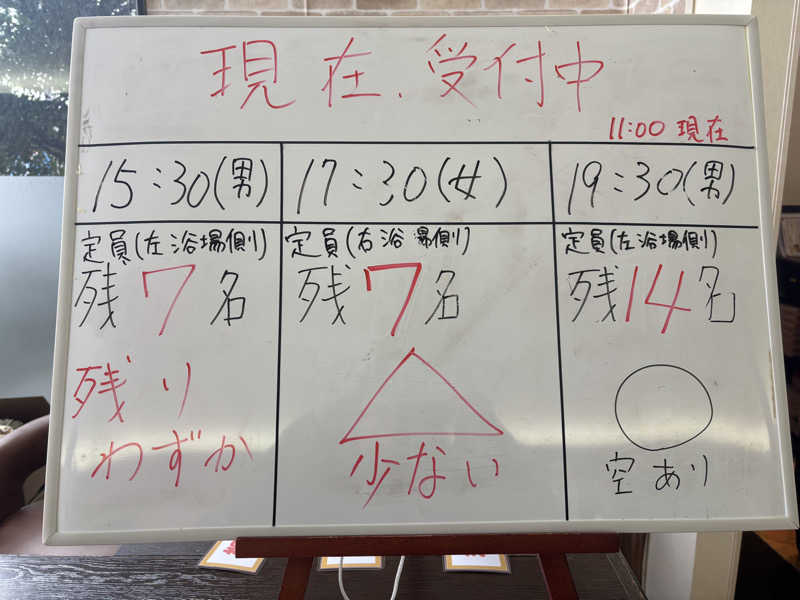 現在、受付中
11:00 現在
15:30(男)
17:30(女)
19:30(男)
定員(左浴場側)
残7名
残り
わずか
定員(右浴場側)
残7名
少ない
定員(左浴場側)
残14名
空あり